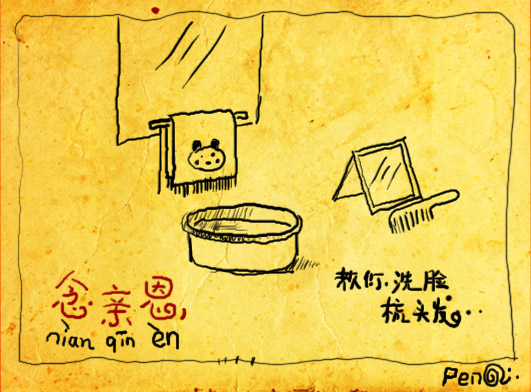 念亲恩,
niàn qīn èn
教你.洗脸
梳头发...
Pen@:.